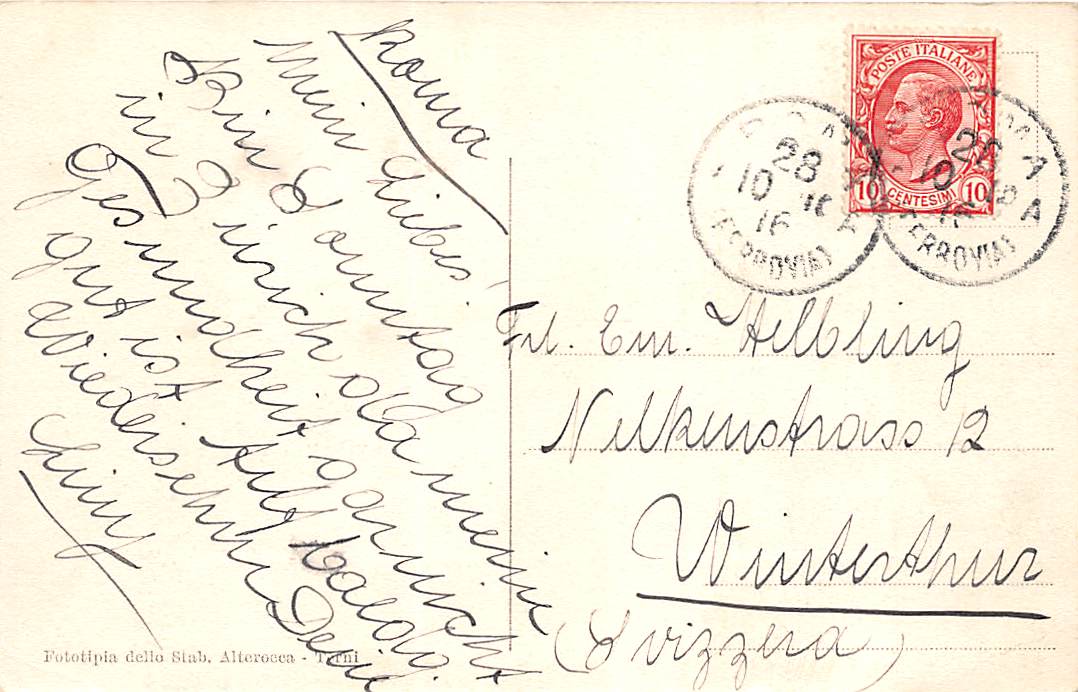 Roma
Mein Liebes!
Bin Sonntag
in Zürich da meine
Gesundheit garnicht
gut ist Auf baldig.
Wiedersehn Dein
POSTE ITALIANE
10 CENTESIMI 10
ROMA
28
10
16
(FERROVIA)
ROMA
28
10
16
(FERROVIA)
Frl. Em. Helbling
Nelkenstrass 12
Winterthur
(Svizzera)
Fototipia dello Stab. Alterocca - Terni